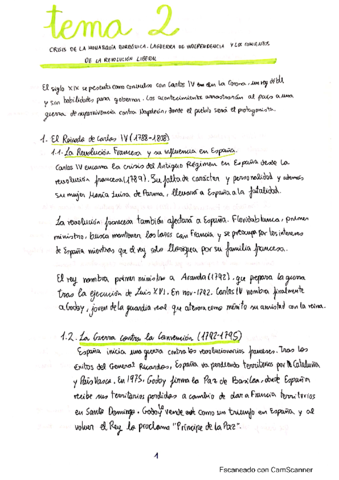 tema 2
CRISIS DE LA MONARQUÍA BORBÓNICA. LA GUERRA DE INDEPENDENCIA Y LOS COMIENZOS
DE LA REVOLUCIÓN LIBERAL
El siglo XIX se presenta como convulso con Carlos IV en la Corona, un rey débil
y sin habilidades para gobernar. Los acontecimientos arrastrarán al país a una
guerra de supervivencia contra Napoleón, donde el pueblo será el protagonista.
1. El Reinado de Carlos IV (1788-1808)
1.1. La Revolución Francesa y su influencia en España.
Carlos IV encarna la crisis del Antiguo Régimen en España desde la
revolución francesa (1789). Su falta de carácter y personalidad y además
su mujer María Luisa de Parma, llevará a España a la fatalidad.
La revolución francesa también afectará a España. Floridablanca, primer
ministro, busca mantener los lazos con Francia y se preocupa por los intereses
de España mientras que el rey solo por su familia francesa.
El rey nombra primer ministro a Aranda (1792), que prepara la guerra
tras la ejecución de Luis XVI. En nov-1792, Carlos IV nombra finalmente
a Godoy, joven de la guardia real que alterna como mérito su amistad con la reina.
1.2. La Guerra contra la Convención (1792-1795)
España inicia una guerra contra los revolucionarios franceses. Tras los
éxitos del General Ricardos, España va perdiendo territorios por Cataluña
y País Vasco. En 1975, Godoy firma la Paz de Basilea, donde España
recibe sus territorios perdidos a cambio de dar a Francia territorios
en Santo Domingo. Godoy lo vende como un triunfo en España y al
volver el Rey lo proclama "Príncipe de la Paz".
1
Escaneado con CamScanner